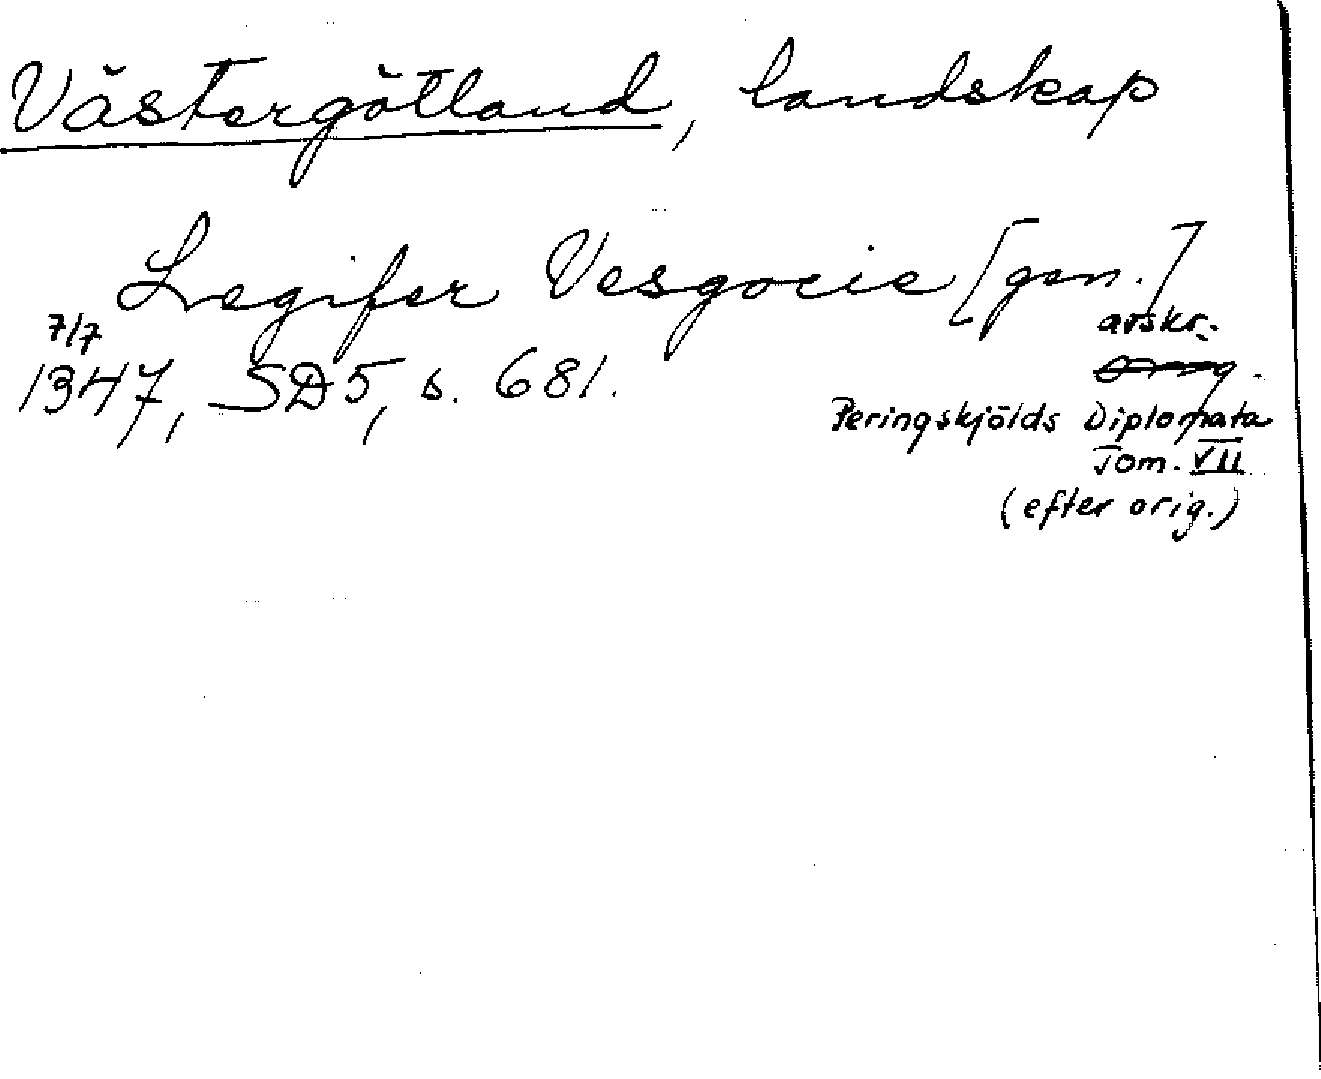 Västergötland, landskap
Legifer Vesgocie [gen.]
7/7
avskr.
1347, SD5, s. 681.
Peringskjölds Diplomata
Tom. VII
(efter orig.)